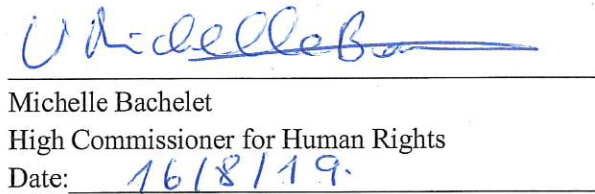 Michelle Ba
Michelle Bachelet
High Commissioner for Human Rights
Date: 16/8/19.